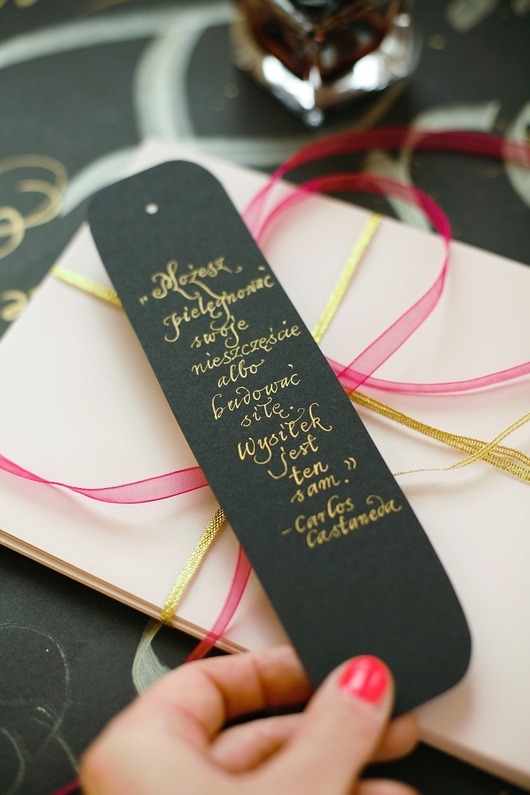 "Możesz
pielęgnować
swoje
nieszczęście
albo
budować
siłę.
Wysiłek
jest
ten
sam."
-Carlos
Castaneda